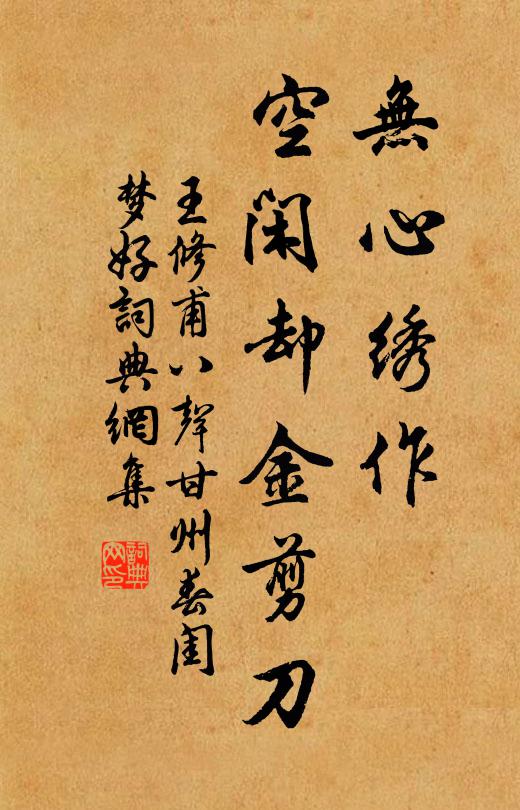 無心綉作
空閑却金剪刀
王修甫八聲甘州春閨
梦好詞典網集
詞典
网印